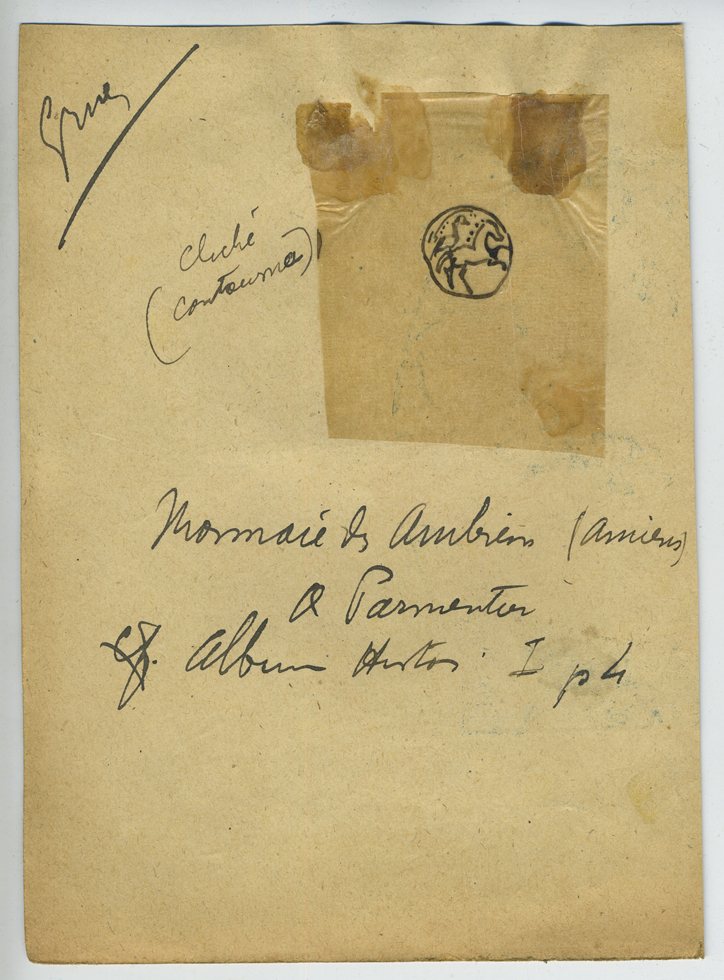 cliché
(contourné)
Monnaie des Ambiens (Amiens)
A Parmentier
cf. Album Histor. I p 4